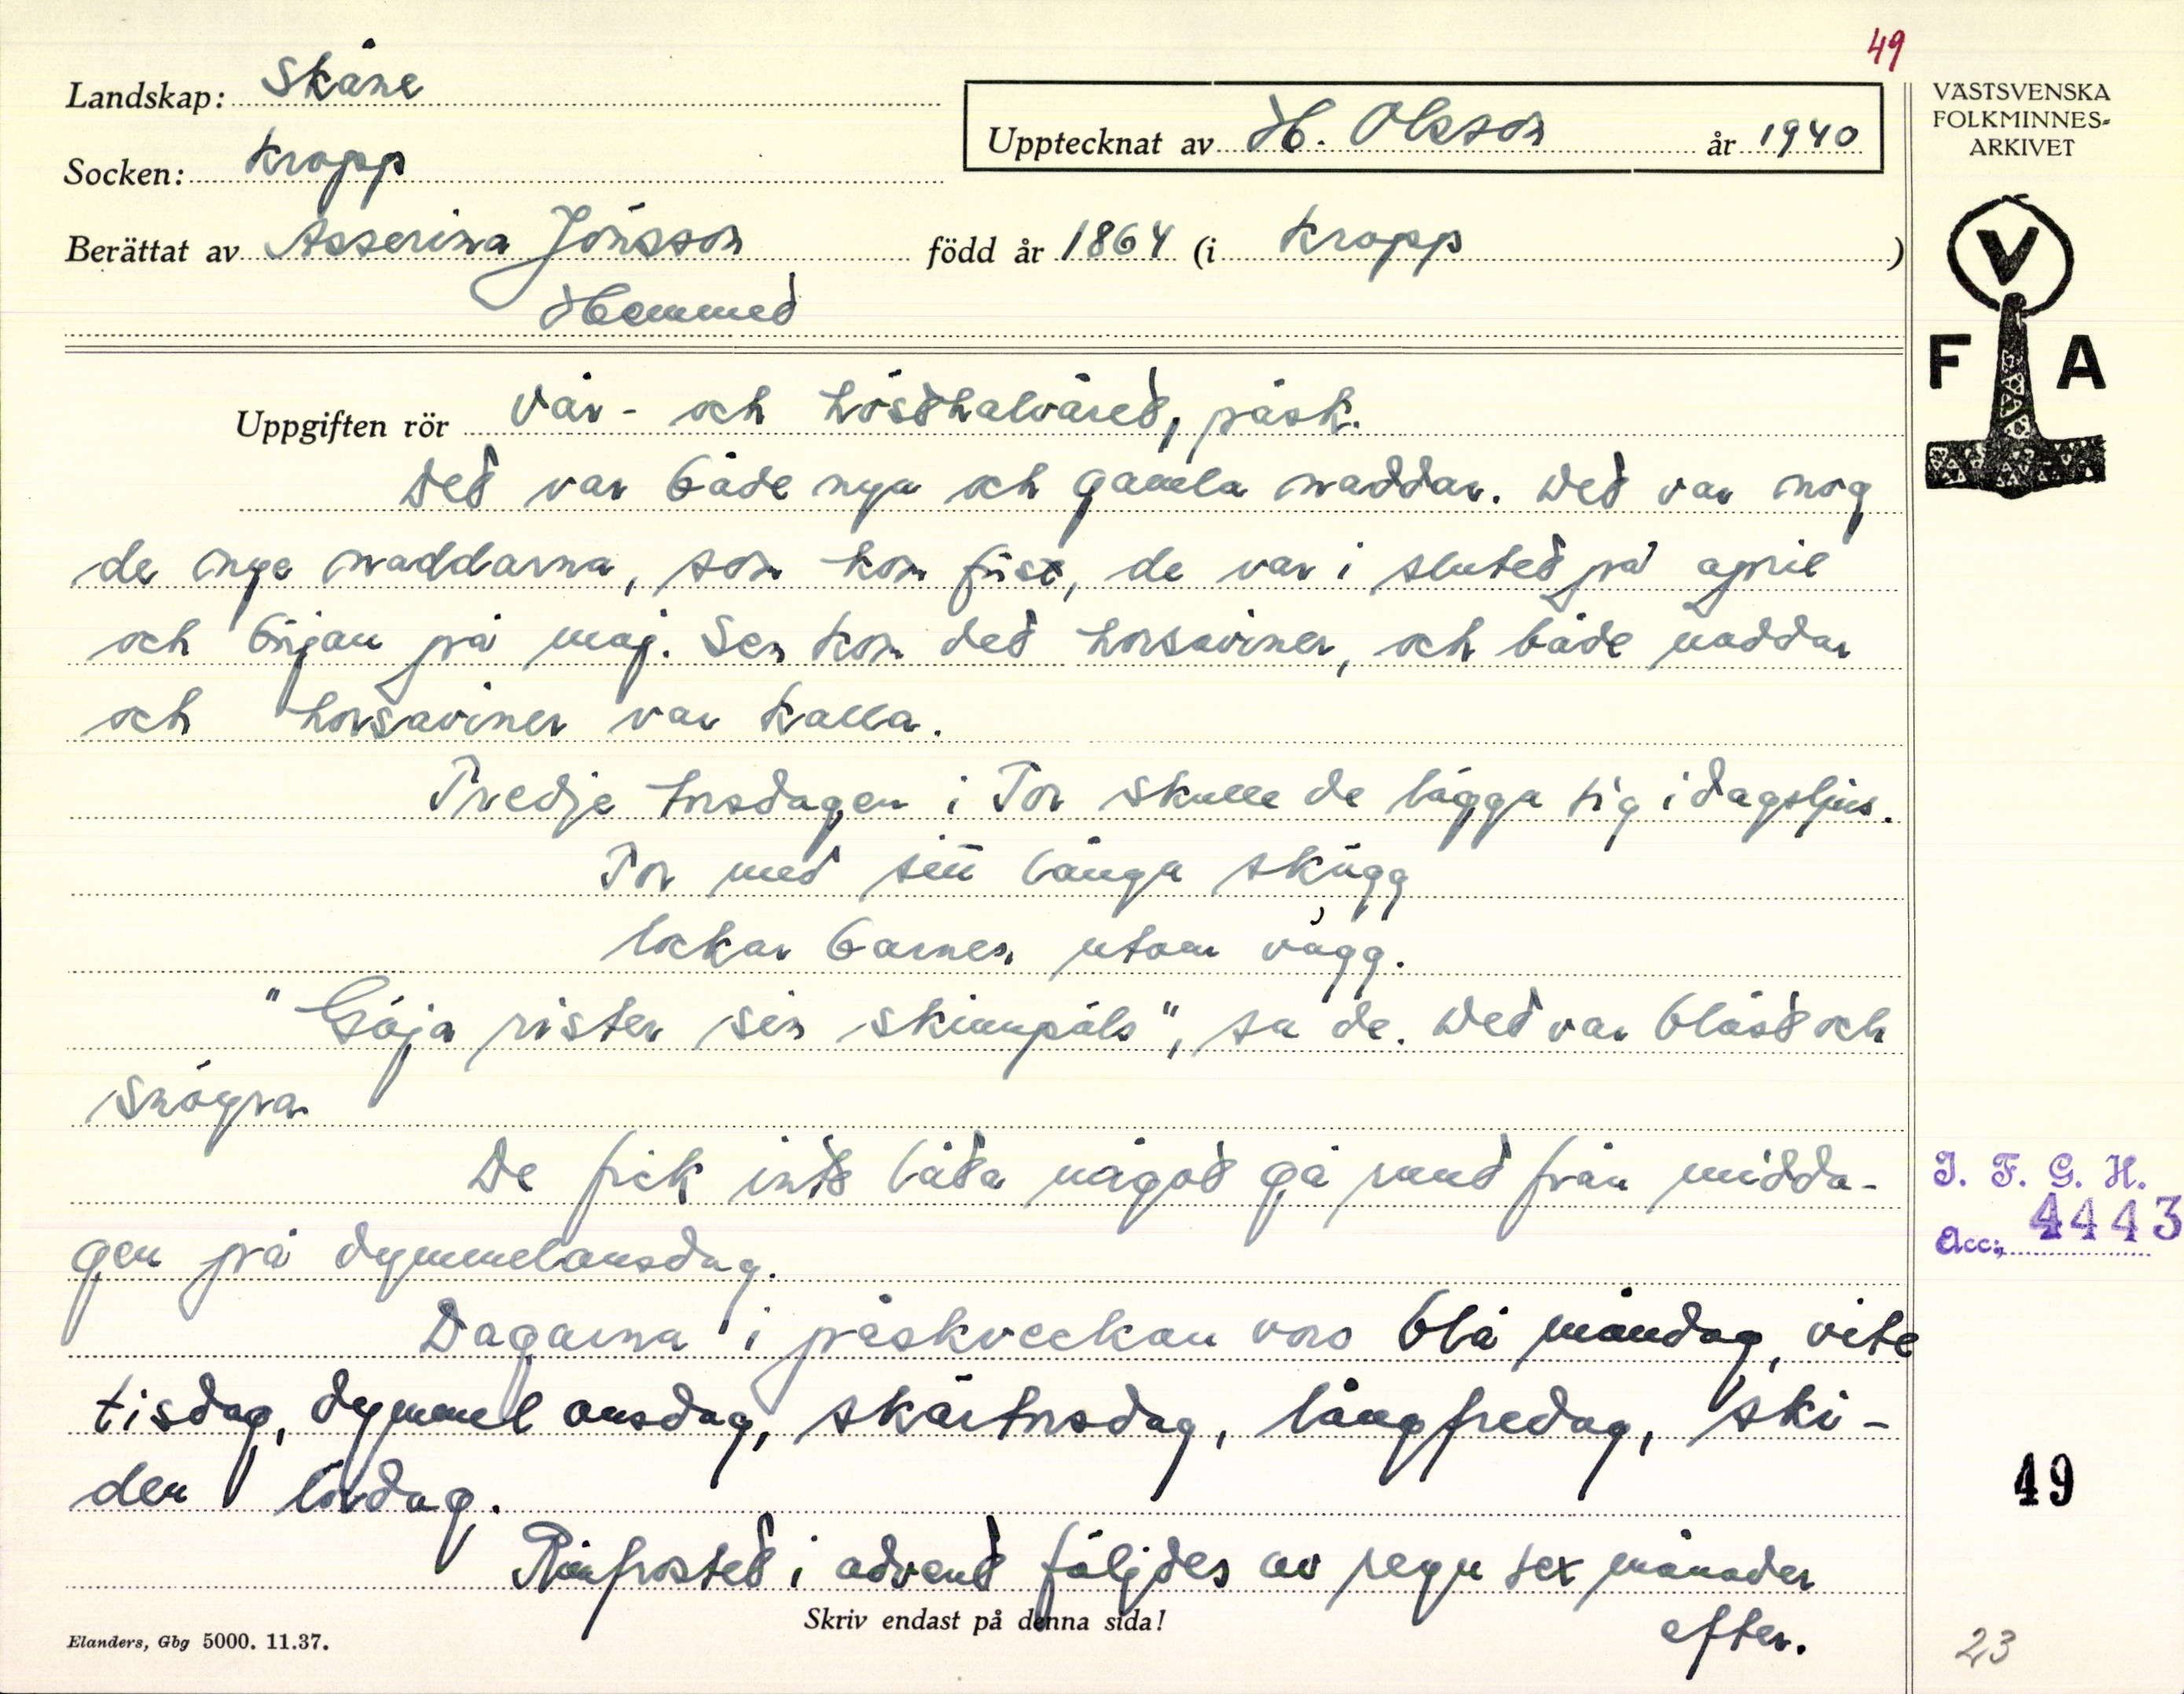 49
Landskap: Skåne
Socken: Kropp
Upptecknat av H. Olsson år 1940
Berättat av Asserina Jönsson född år 1864 (i Kropp)
Hemmed
VÄSTSVENSKA
FOLKMINNES-
ARKIVET
V
F A
Uppgiften rör Vår- och hösthalvåret, påsk.
Det var både nya och gamla naddar. Det var nog
de nya naddarna, som kom först, de var i slutet på april
och början på maj. Sen kom det horsaviner, och både naddar
och horsaviner var kalla.
Tredje torsdagen i Tor skulle de lägga sig i dagsljus.
Tor med sitt långa skägg
lockar barnen utom vägg.
"Göja rister sin skinnpäls", sa de. Det var blåst och
snögva.
De fick inte låta något gå runt från midda-
gen på dymmelonsdag.
Dagarna i påskveckan vors blå måndag, vite
tisdag, dymmel onsdag, skärtorsdag, långfredag, ski-
den lördag.
Rimfrostet i advent följdes av regn sex månader
efter.
Skriv endast på denna sida!
Elanders, Gbg 5000. 11.37.
I. F. G. H.
Acc: 4443
49
23